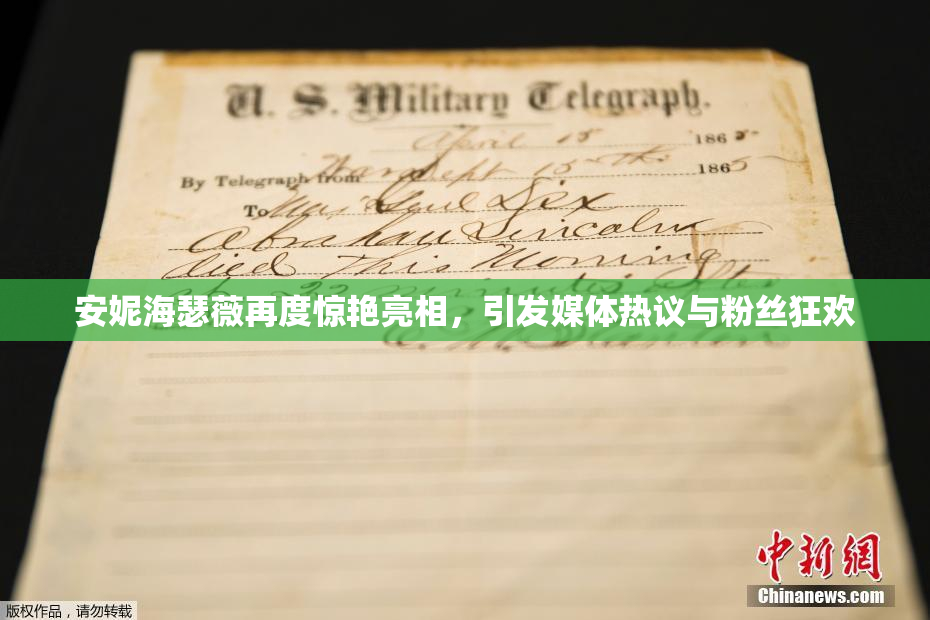 U. S. Military Telegraph.
April 15 1865
By Telegraph from War Dept 15th 1865
To Maj Genl Dix
Abraham Lincoln
died This Morning
22 minutes after
安妮海瑟薇再度惊艳亮相，引发媒体热议与粉丝狂欢
E. M. Stanton
中新网
Chinanews.com
版权作品，请勿转载